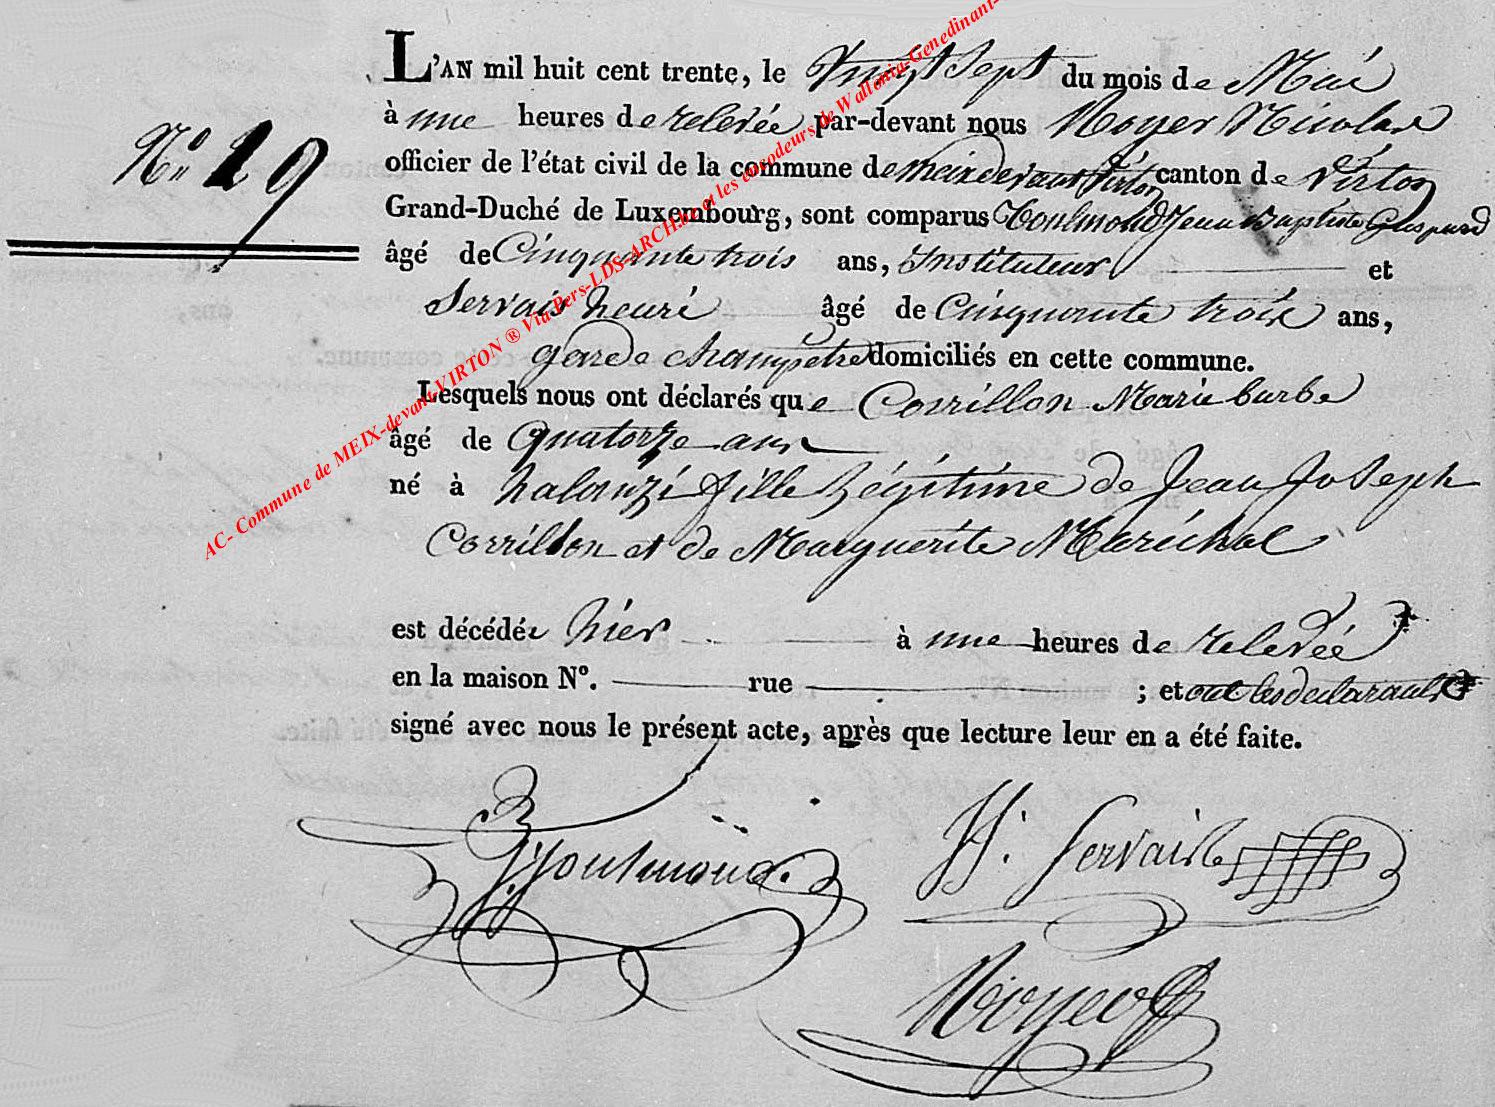 L'AN mil huit cent trente, le Vingt Sept du mois de Mai
à une heures de relevée par-devant nous Noyer Nicolas
No 19
officier de l'état civil de la commune de meix devant Virton canton de Virton
Grand-Duché de Luxembourg, sont comparus Toulmond Jean Baptiste Gaspard
âgé de Cinquante trois ans, Instituteur et
Servais henri âgé de Cinquante trois ans,
garde champetre domiciliés en cette commune.
Lesquels nous ont déclarés que Corrillon Marie barbe
âgé de quatorze ans
né à halanzi fille Légitime de Jean Joseph
Corrillon et de Marguerite Maréchal
est décédée hier à une heures de relevée
en la maison N°. rue ; et ont les declarants
signé avec nous le présent acte, après que lecture leur en a été faite.
Toulmond. H. Servais
Noyer
AC- Commune de MEIX-devant-VIRTON ® Via Pers-LDS-ARCH.be et les encodeurs de Wallonia-Genedinant-